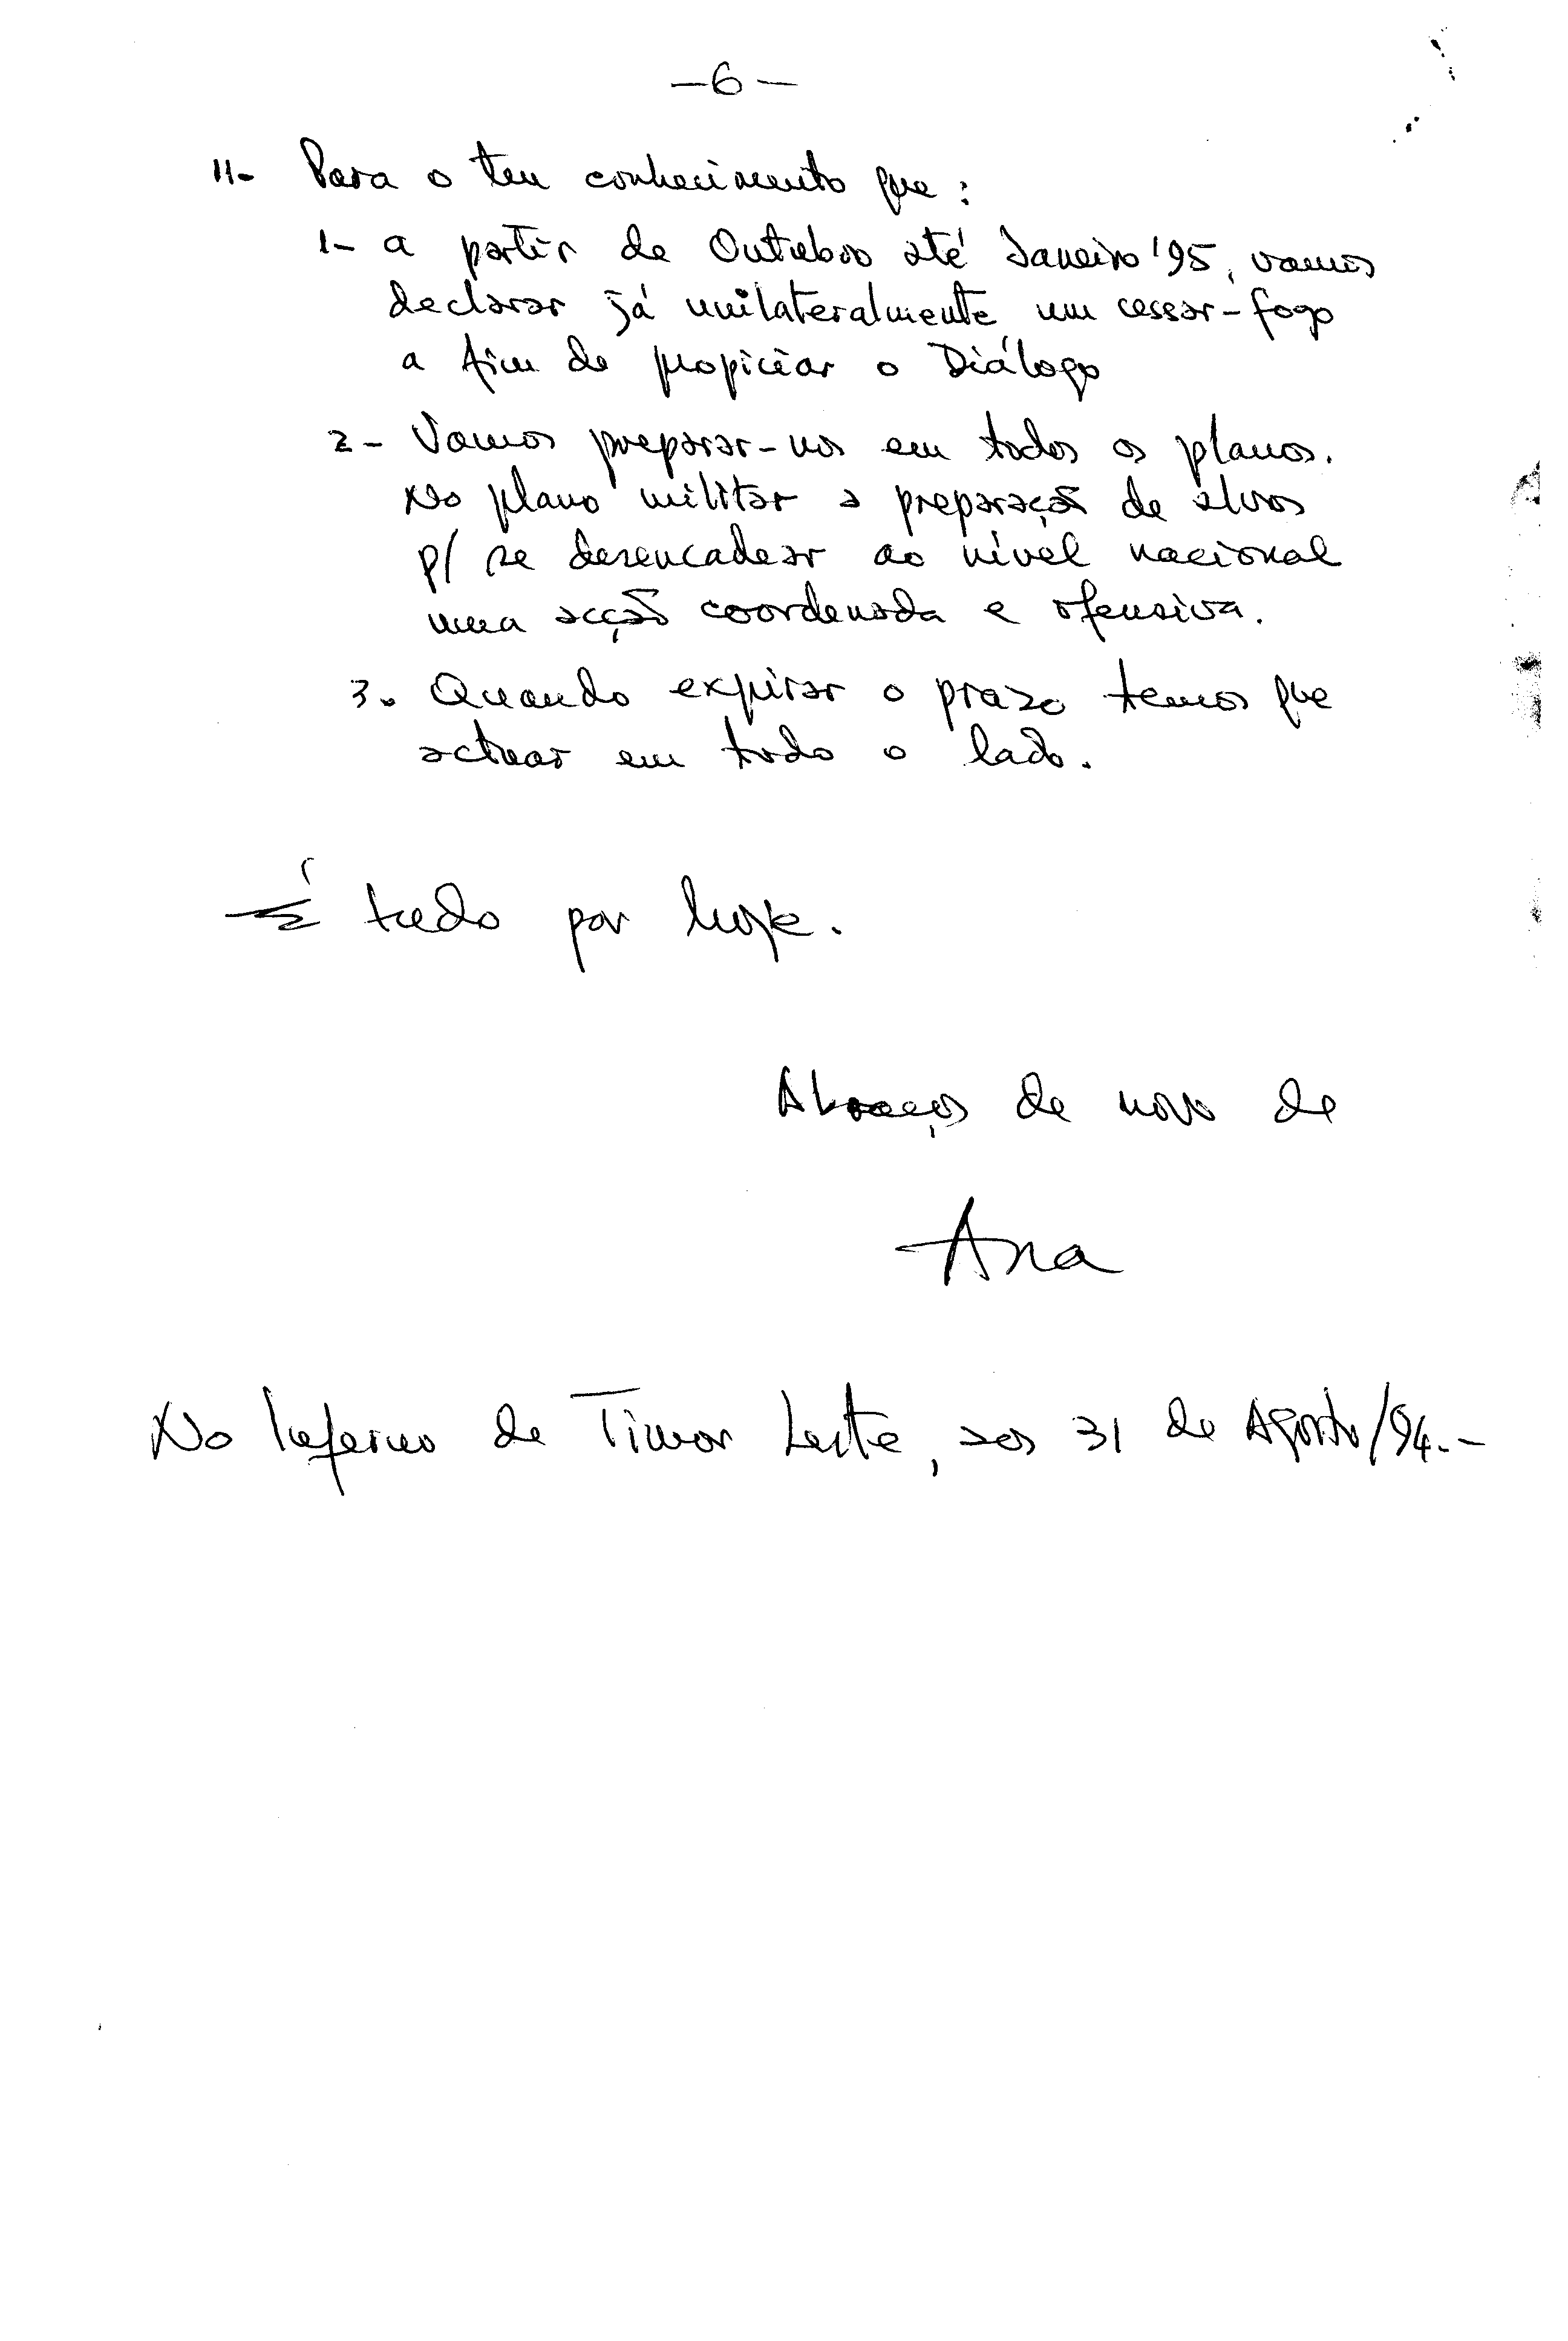 -6-
11- Para o teu conhecimento que:
1- a partir de Outubro até Janeiro '95, vamos
declarar já unilateralmente um cessar-fogo
a fim de propiciar o Diálogo
2- Vamos preparar-nos em todos os planos.
No plano militar a preparação de alvos
p/ se desencadear ao nível nacional
uma acção coordenada e ofensiva.
3. Quando expirar o prazo temos que
actuar em todo o lado.
É tudo por hoje.
Abraços de novo de
Ana
No Inferno de Timor Leste, aos 31 de Agosto/94.-